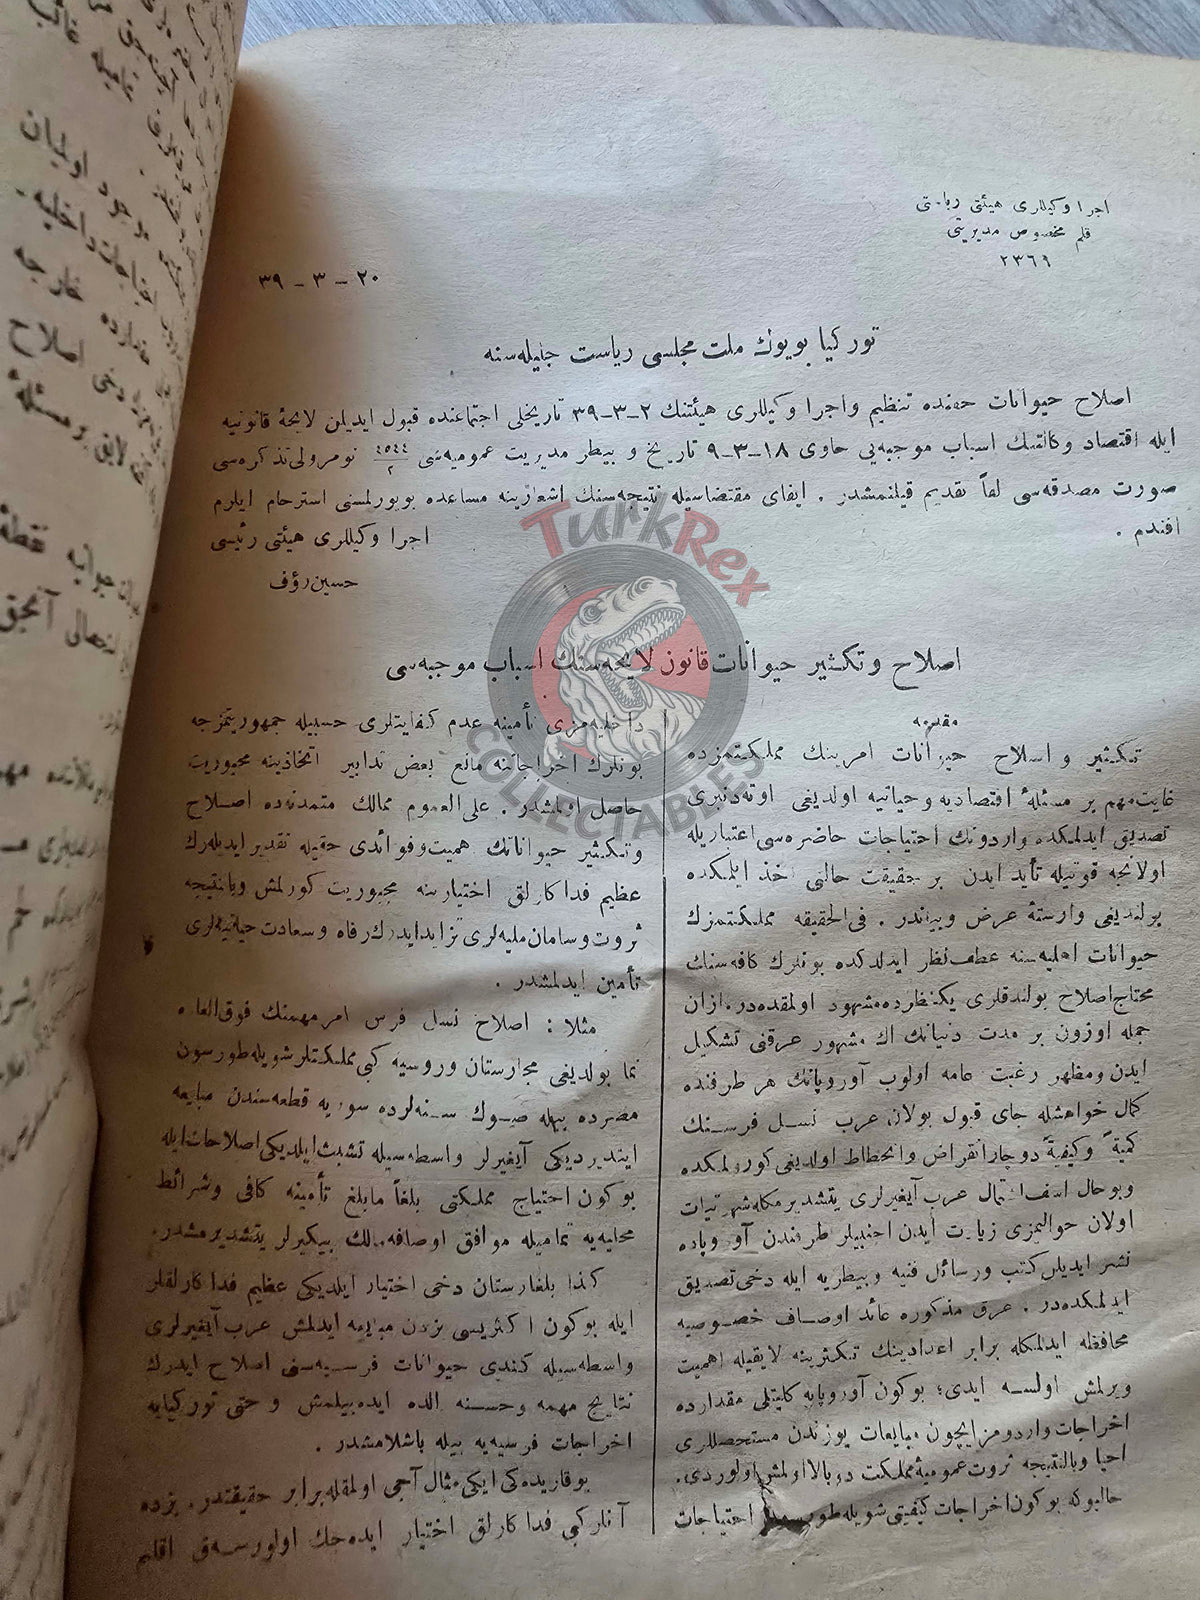 اجرا وكيللری هيئتی رياستی
قلم مخصوص مديريتی
٢٣٦٩
٢٠ - ٣ - ٣٩
توركيا بويوك ملت مجلسی رياست جليله‌سنه
اصلاح حيوانات حقنده تنظيم و اجرا وكيللری هيئتنك ٢-٣-٣٩ تاريخلی اجتماعنده قبول ايديلن لايحهٔ قانونيه
ايله اقتصاد وكالتنك اسباب موجبه‌يی حاوی ١٨-٣-٩ تاريخ و بيطر مديريت عموميه‌سی ٤٥٤٤/٢ نومرولی تذكره‌سی
صورت مصدقه‌سی لفاً تقديم قيلنمشدر . ايفای مقتضاسيله نتيجه‌سنك اشعارينه مساعده بويورلمسنی استرحام ايلرم
افندم .
اجرا وكيللری هيئتی رئيسی
حسين رؤف
TurkRex
COLLECTABLES
اصلاح و تكثير حيوانات قانون لايحه‌سنك اسباب موجبه‌سی
مقدمه
تكثير و اسلاح حيوانات امرينك مملكتمزده
غايت مهم بر مسئلهٔ اقتصاديه و حياتيه اولديغی اوته‌دنبری
تصديق ايدلمكده و اردونك احتياجات حاضره‌سی اعتباريله
اولانجه قوتيله تأيد ايدن بر حقيقت حالنی اخذ ايلمكده
بولنديغی وارستهٔ عرض و بياندر . فی الحقيقه مملكتمزك
حيوانات اهليه‌سنه عطف نظر ايدلدكده بونلرك كافه‌سنك
محتاج اصلاح بولندقلری يك نظرده مشهود اولمقده‌در. ازان
جمله اوزون بر مدت دنيانك اك مشهور عرقنی تشكيل
ايدن و مظهر رغبت عامه اولوب آوروپانك هر طرفنده
كمال خواهشله جای قبول بولان عرب نسل فرسنك
كميةً و كيفيةً دوچار انقراض و انحطاط اولديغی كورولمكده
و بو حال اسف اشتمال عرب آيغيرلری يتشديرمكله شهرتيات
اولان حواليمزی زيارت ايدن اجنبيلر طرفندن آوروپاده
نشر ايديلن كتب و رسائل فنيه و بيطريه ايله دخی تصديق
ايدلمكده‌در . عرق مذكوره عائد اوصاف خصوصيه
محافظه ايدلمكله برابر اعدادينك تكثرينه لايقيله اهميت
ويرلمش اولسه ايدی؛ بوكون آوروپايه كليتلی مقدارده
اخراجات و اردومز ايچون مبايعات يوزندن مستحصللری
احيا و بالنتيجه ثروت عموميهٔ مملكت دوبالا اولمش اولوردی.
حالبوكه بوكون اخراجات كيفيتی شويله طورسون احتياجات
داخليه‌مزی تأمينه عدم كفايتلری حسبيله جمهوريتمزجه
بونلرك اخراجاتنه مانع بعض تدابير اتخاذينه مجبوريت
حاصل اولمشدر . علی العموم ممالك متمدنه‌ده اصلاح
و تكثير حيواناتك اهميت و فوائدی حقيله تقدير ايديله‌رك
عظيم فداكارلق اختيارينه مجبوريت كورلمش و بالنتيجه
ثروت و سامان مليه‌لری تزايد ايدرك رفاه و سعادت حياتيه‌لری
تأمين ايدلمشدر .
مثلا : اصلاح نسل فرس امر مهمنك فوق العاده
نما بولديغی مجارستان و روسيه كبی مملكتلر شويله طورسون
مصرده بيله صوك سنه‌لرده سوريه قطعه‌سندن مبايعه
ايتديرديكی آيغيرلر واسطه‌سيله تشبث ايلديكی اصلاحات ايله
بوكون احتياج مملكتی بلغاً مابلغ تأمينه كافی و شرائط
محليه‌يه تماميله موافق اوصافه مالك بيكيرلر يتشديرمشدر.
كذا بلغارستان دخی اختيار ايلديكی عظيم فداكارلقلر
ايله بوكون اكثريسی بزدن مبايعه ايدلمش عرب آيغيرلری
واسطه‌سيله كندی حيوانات فرسيه‌سنی اصلاح ايدرك
نتايج مهمه و حسنه الده ايده‌بيلمش و حتی توركيايه
اخراجات فرسيه‌يه بيله باشلامشدر .
يوقاريده‌كی ايكی مثال آجی اولمقله برابر حقيقتدر. بزده
آنلر كبی فداكارلق اختيار ايده‌جك اولورسه‌ق اقلم